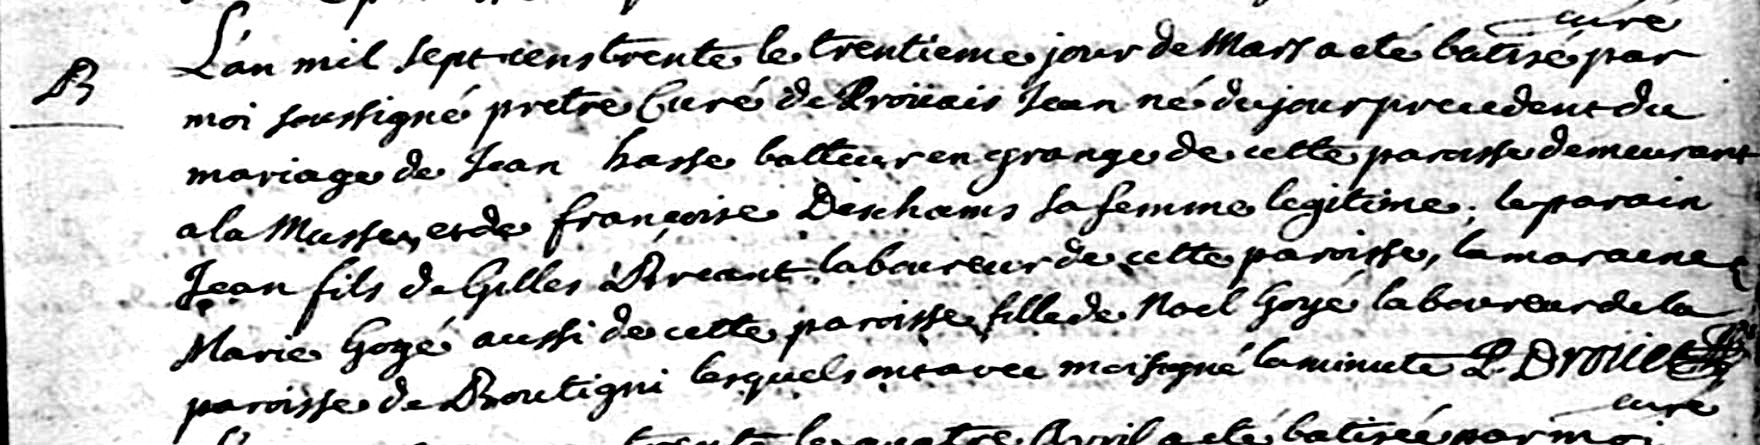 curé
B
L'an mil sept cens trente le trentieme jour de Mars a eté batisé par
moi soussigné pretre Curé de Proüais Jean né du jour precedent du
mariage de Jean hasse batteur en grange de cette paroisse demeurant
a la Musse, et de françoise Deschams sa femme legitime; le parain
Jean fils de Gilles Breant laboureur de cette paroisse, la maraine
Marie Goyé aussi de cette paroisse fille de Noel Goyé laboureur de la
paroisse de Boutigni lesquels ont avec moi signé la minute P. Droüet
curé
trente le quatre Avril a eté batisée par moi